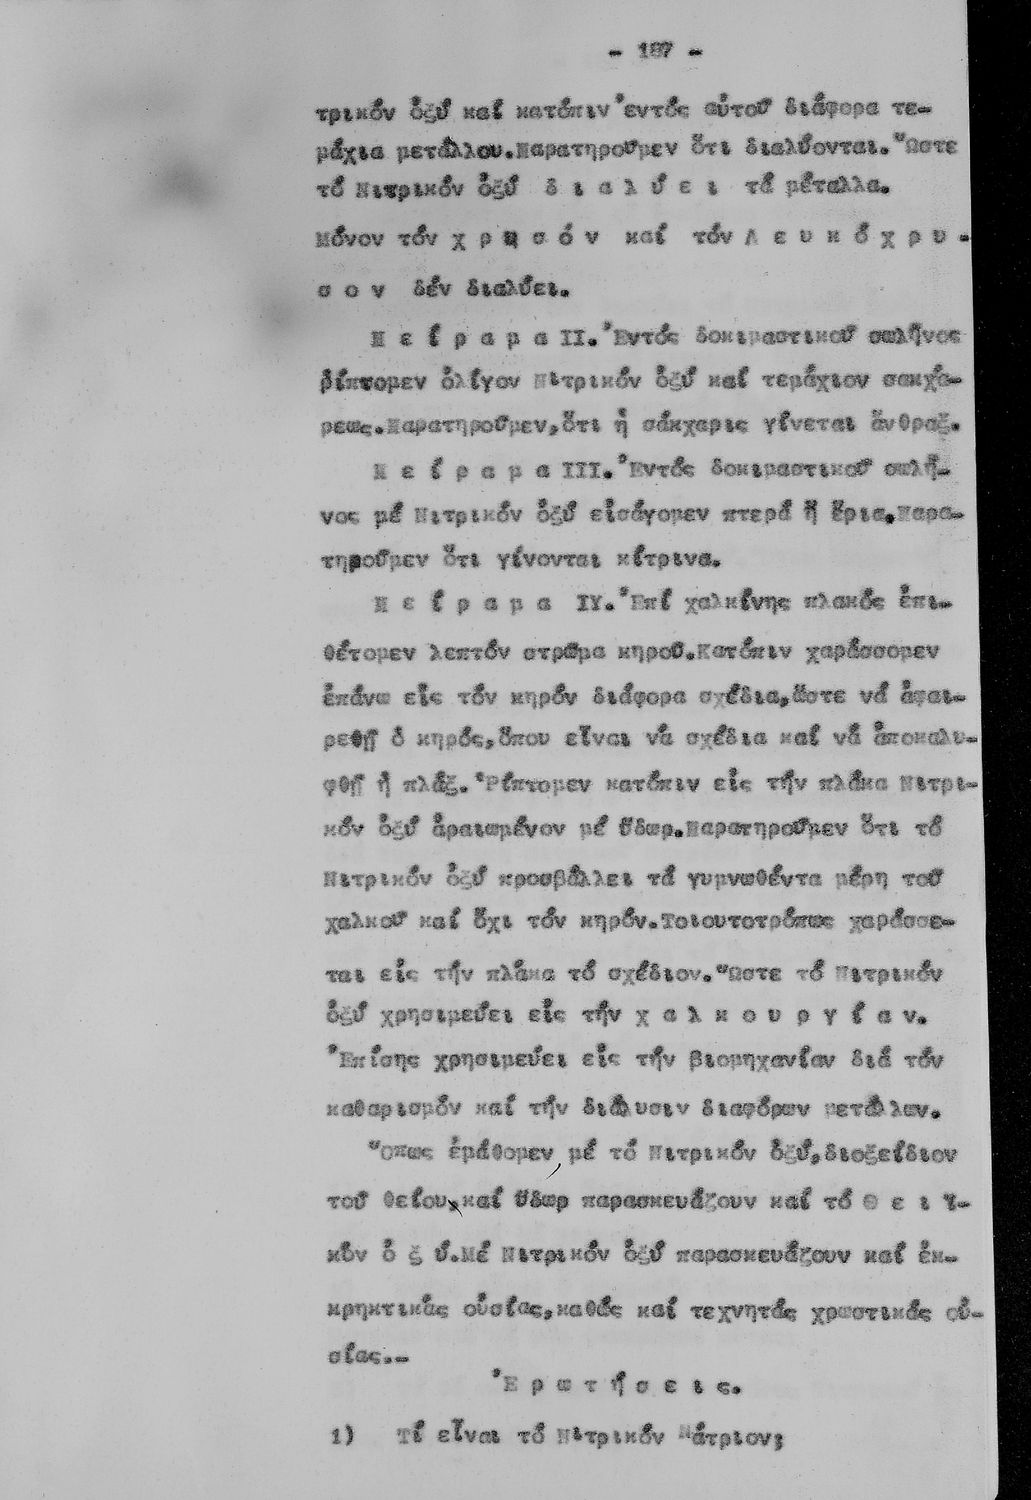 - 187 -
τρικόν ὀξύ καί κατόπιν ἐντός αὐτοῦ διάφορα τε-
μάχια μετάλλου.Παρατηροῦμεν ὅτι διαλύονται.Ὥστε
τό Νιτρικόν ὀξύ δ ι α λ ύ ε ι τά μέταλλα.
Μόνον τόν χ ρ υ σ ό ν καί τόν Λ ε υ κ ό χ ρ υ -
σ ο ν δέν διαλύει.
Π ε ί ρ α μ α II. Ἐντός δοκιμαστικοῦ σωλῆνος
ῥίπτομεν ὀλίγον Νιτρικόν ὀξύ καί τεμάχιον σακχά-
ρεως.Παρατηροῦμεν,ὅτι ἡ σάκχαρις γίνεται ἄνθραξ.
Π ε ί ρ α μ α III. Ἐντός δοκιμαστικοῦ σωλῆ-
νος μέ Νιτρικόν ὀξύ εἰσάγομεν πτερά ἤ ἔρια.Παρα-
τηροῦμεν ὅτι γίνονται κίτρινα.
Π ε ί ρ α μ α IY. Ἐπί χαλκίνης πλακός ἐπι-
θέτομεν λεπτόν στρῶμα κηροῦ.Κατόπιν χαράσσομεν
ἐπάνω εἰς τόν κηρόν διάφορα σχέδια,ὥστε νά ἀφαι-
ρεθῇ ὁ κηρός,ὅπου εἶναι νά σχέδια καί νά ἀποκαλυ-
φθῇ ἡ πλάξ. Ῥίπτομεν κατόπιν εἰς τήν πλάκα Νιτρι-
κόν ὀξύ ἀραιωμένον μέ ὕδωρ.Παρατηροῦμεν ὅτι τό
Νιτρικόν ὀξύ προσβάλλει τά γυμνωθέντα μέρη τοῦ
χαλκοῦ καί ὄχι τόν κηρόν.Τοιουτοτρόπως χαράσσε-
ται εἰς τήν πλάκα τό σχέδιον.Ὥστε τό Νιτρικόν
ὀξύ χρησιμεύει εἰς τήν χ α λ κ ο υ ρ γ ί α ν.
Ἐπίσης χρησιμεύει εἰς τήν βιομηχανίαν διά τόν
καθαρισμόν καί τήν διάλυσιν διαφόρων μετάλλων.
Ὅπως ἐμάθομεν, μέ τό Νιτρικόν ὀξύ,διοξείδιον
τοῦ θείου,καί ὕδωρ παρασκευάζουν καί τό Θ ε ι ϊ-
κόν ὀ ξ ύ.Μέ Νιτρικόν ὀξύ παρασκευάζουν καί ἐκ-
κρηκτικάς οὐσίας,καθώς καί τεχνητάς χρωστικάς οὐ-
σίας.-
Ἐ ρ ω τ ή σ ε ι ς.
1) Τί εἶναι τό Νιτρικόν Νάτριον;